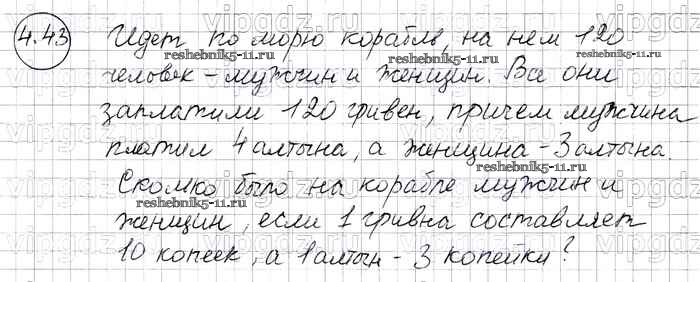 4.43 Идет по морю корабль, на нем 120
reshebnik5-11.ru
человек - мужчин и женщин. Все они
заплатили 120 гривен, причем мужчина
платил 4 алтына, а женщина - 3 алтына.
reshebnik5-11.ru
Сколко было на корабле мужчин и
reshebnik5-11.ru
женщин, если 1 гривна составляет
reshebnik5-11.ru
10 копеек, а 1 алтын - 3 копейки?